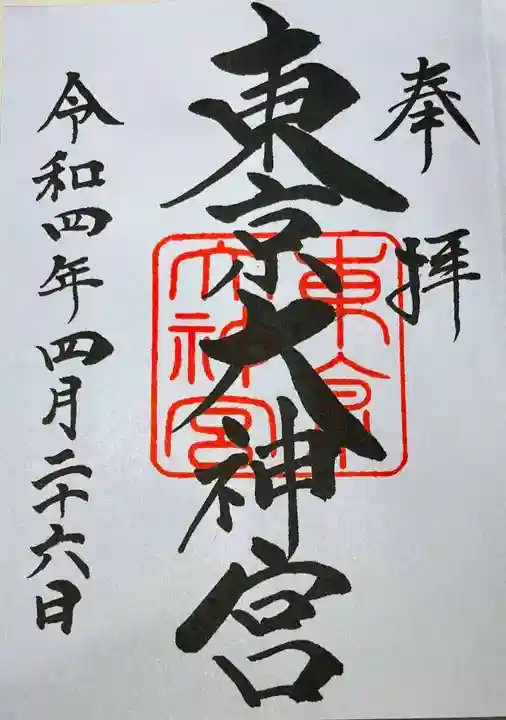 奉拝
東京大神宮
東京
大神宮
令和四年四月二十六日